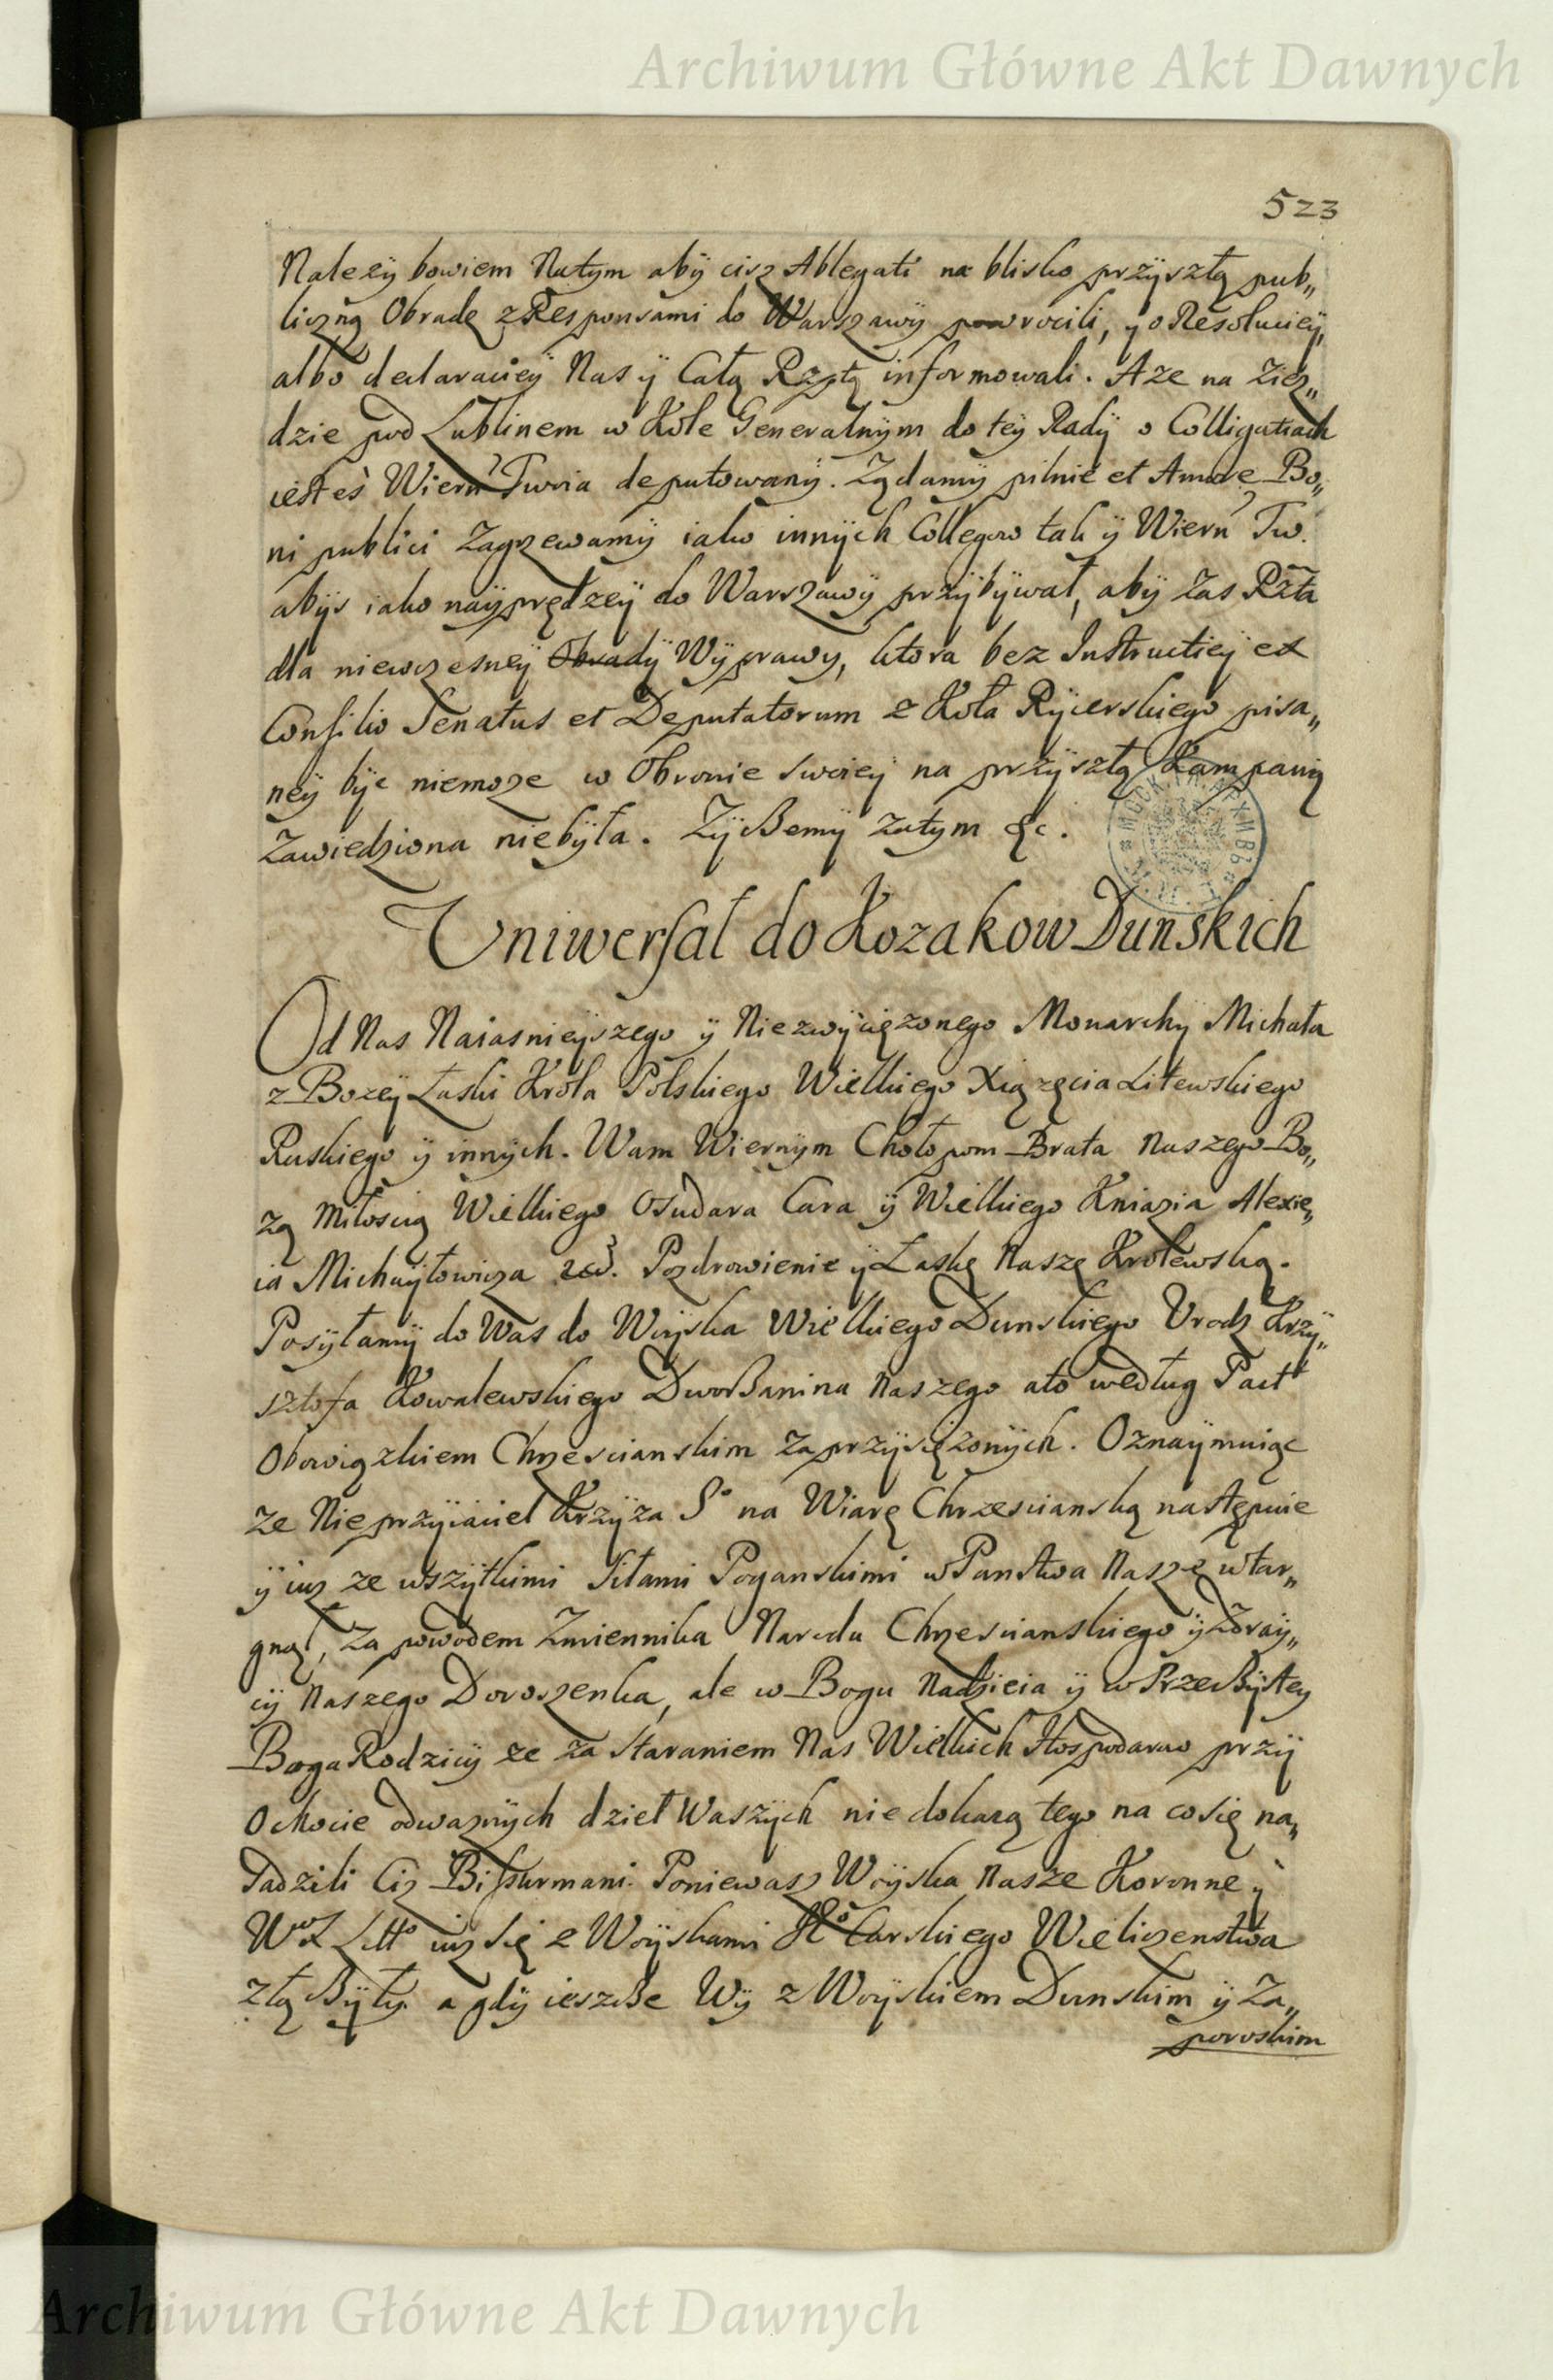 Archiwum Główne Akt Dawnych
523
Nalezÿ bowiem Natym abÿ cisz Ablegati na blisko przÿszłą pub„
liczną Obradę z Responsami do Warszawÿ powrocili, y o Resoluciey,
albo declaraciey Nas ÿ Całą Rzptą informowali. A ze na Ziez„
dzie pod Lublinem w Kole Generalnÿm do teÿ Radÿ o Colligatiach
iestes Wiern Twoia deputowanÿ. Ządamÿ pilnie et Amore Bo„
ni publici Zagrzewamÿ iako innÿch Collegow tak ÿ Wiern Tw.
abÿs iako naÿprędzeÿ do Warszawÿ przÿbÿwał, abÿ zas Rzta
dla niewczesneÿ Obradÿ Wÿprawy, ktora bez Instructiey ex
Consilio Senatus et Deputatorum z Koła Rÿcerskiego pisa„
neÿ bÿc niemoze w Obronie swoieÿ na przÿszłą Kampanią
Zawiedziona niebÿła. Zÿczemÿ zatym &c.
Uniwersał do Kozakow Dunskich
Od Nas Naiasnieÿszego ÿ Niezwÿciązonego Monarchÿ Michała
z Bozeÿ Łaski Krola Polskiego Wielkiego Xiązęcia Litewskiego
Ruskiego ÿ innÿch. Wam Wiernÿm Chołopom Brata Naszego Bo„
zą Miłoscią Wielkiego Osudara Cara ÿ Wielkiego Kniazia Alexie„
ia Michaÿłowicza Pozdrowienie ÿ Łaskę Naszę Krolewską.
Posÿłamÿ do Was do Woÿska Wielkiego Dunskiego Urodz Krzÿ„
sztofa Kowalewskiego Dworzanina Naszego ato według Pact
Obowiązkiem Chrzescianskim zaprzÿsięzonÿch. Oznaÿmuiąc
ze Nieprzÿiaciel Krzÿza So na Wiarę Chrzescianską następuie
ÿ iusz ze wszÿtkimi Siłami Poganskimi w Panstwa Nasze wtar„
gnął, za powodem Zmiennika Narodu Chrzescianskiego ÿ Zdraÿ„
cÿ Naszego Doroszenka, ale w Bogu Nadzieia ÿ w Przeczÿstey
Boga Rodzicÿ ze za staraniem Nas Wielkich Hospodarow przÿ
Ochocie odwaznÿch dzieł Waszÿch niedokazą tego na co się na„
sadzili Cisz Bissurmani. Poniewasz Woÿska Nasze Koronne ÿ
WXLitto iusz się z Woÿskami Carskiego Wieliczenstwa
złączÿłÿ. a gdÿ ieszcze Wÿ z Woÿskiem Dunskim ÿ Za„
poroskim
Archiwum Główne Akt Dawnych